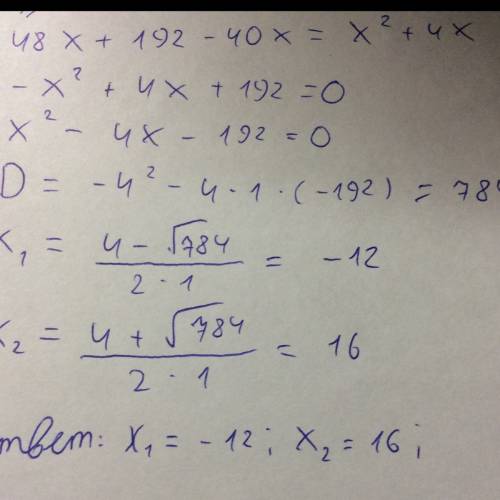 48x + 192 - 40x = x² + 4x
- x² + 4x + 192 = 0
x² - 4x - 192 = 0
D = -4² - 4 · 1 · (-192) = 784
x₁ = (4 - √784) / (2 · 1) = -12
x₂ = (4 + √784) / (2 · 1) = 16
твет: x₁ = -12; x₂ = 16;